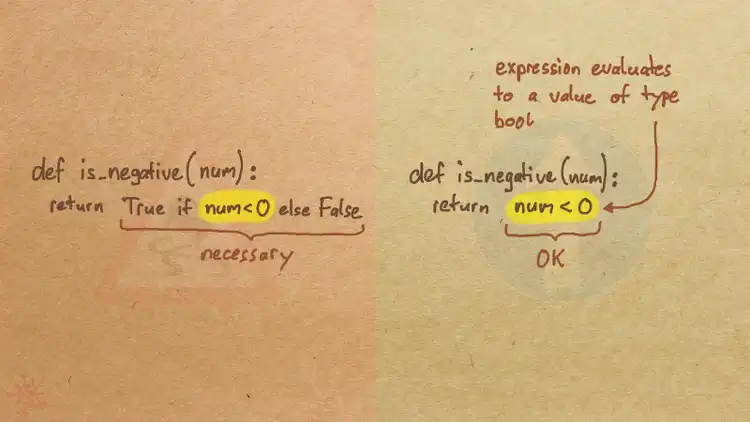 def is_negative(num):
return True if num<0 else False
necessary
expression evaluates
to a value of type
bool
def is_negative(num):
return num<0
OK